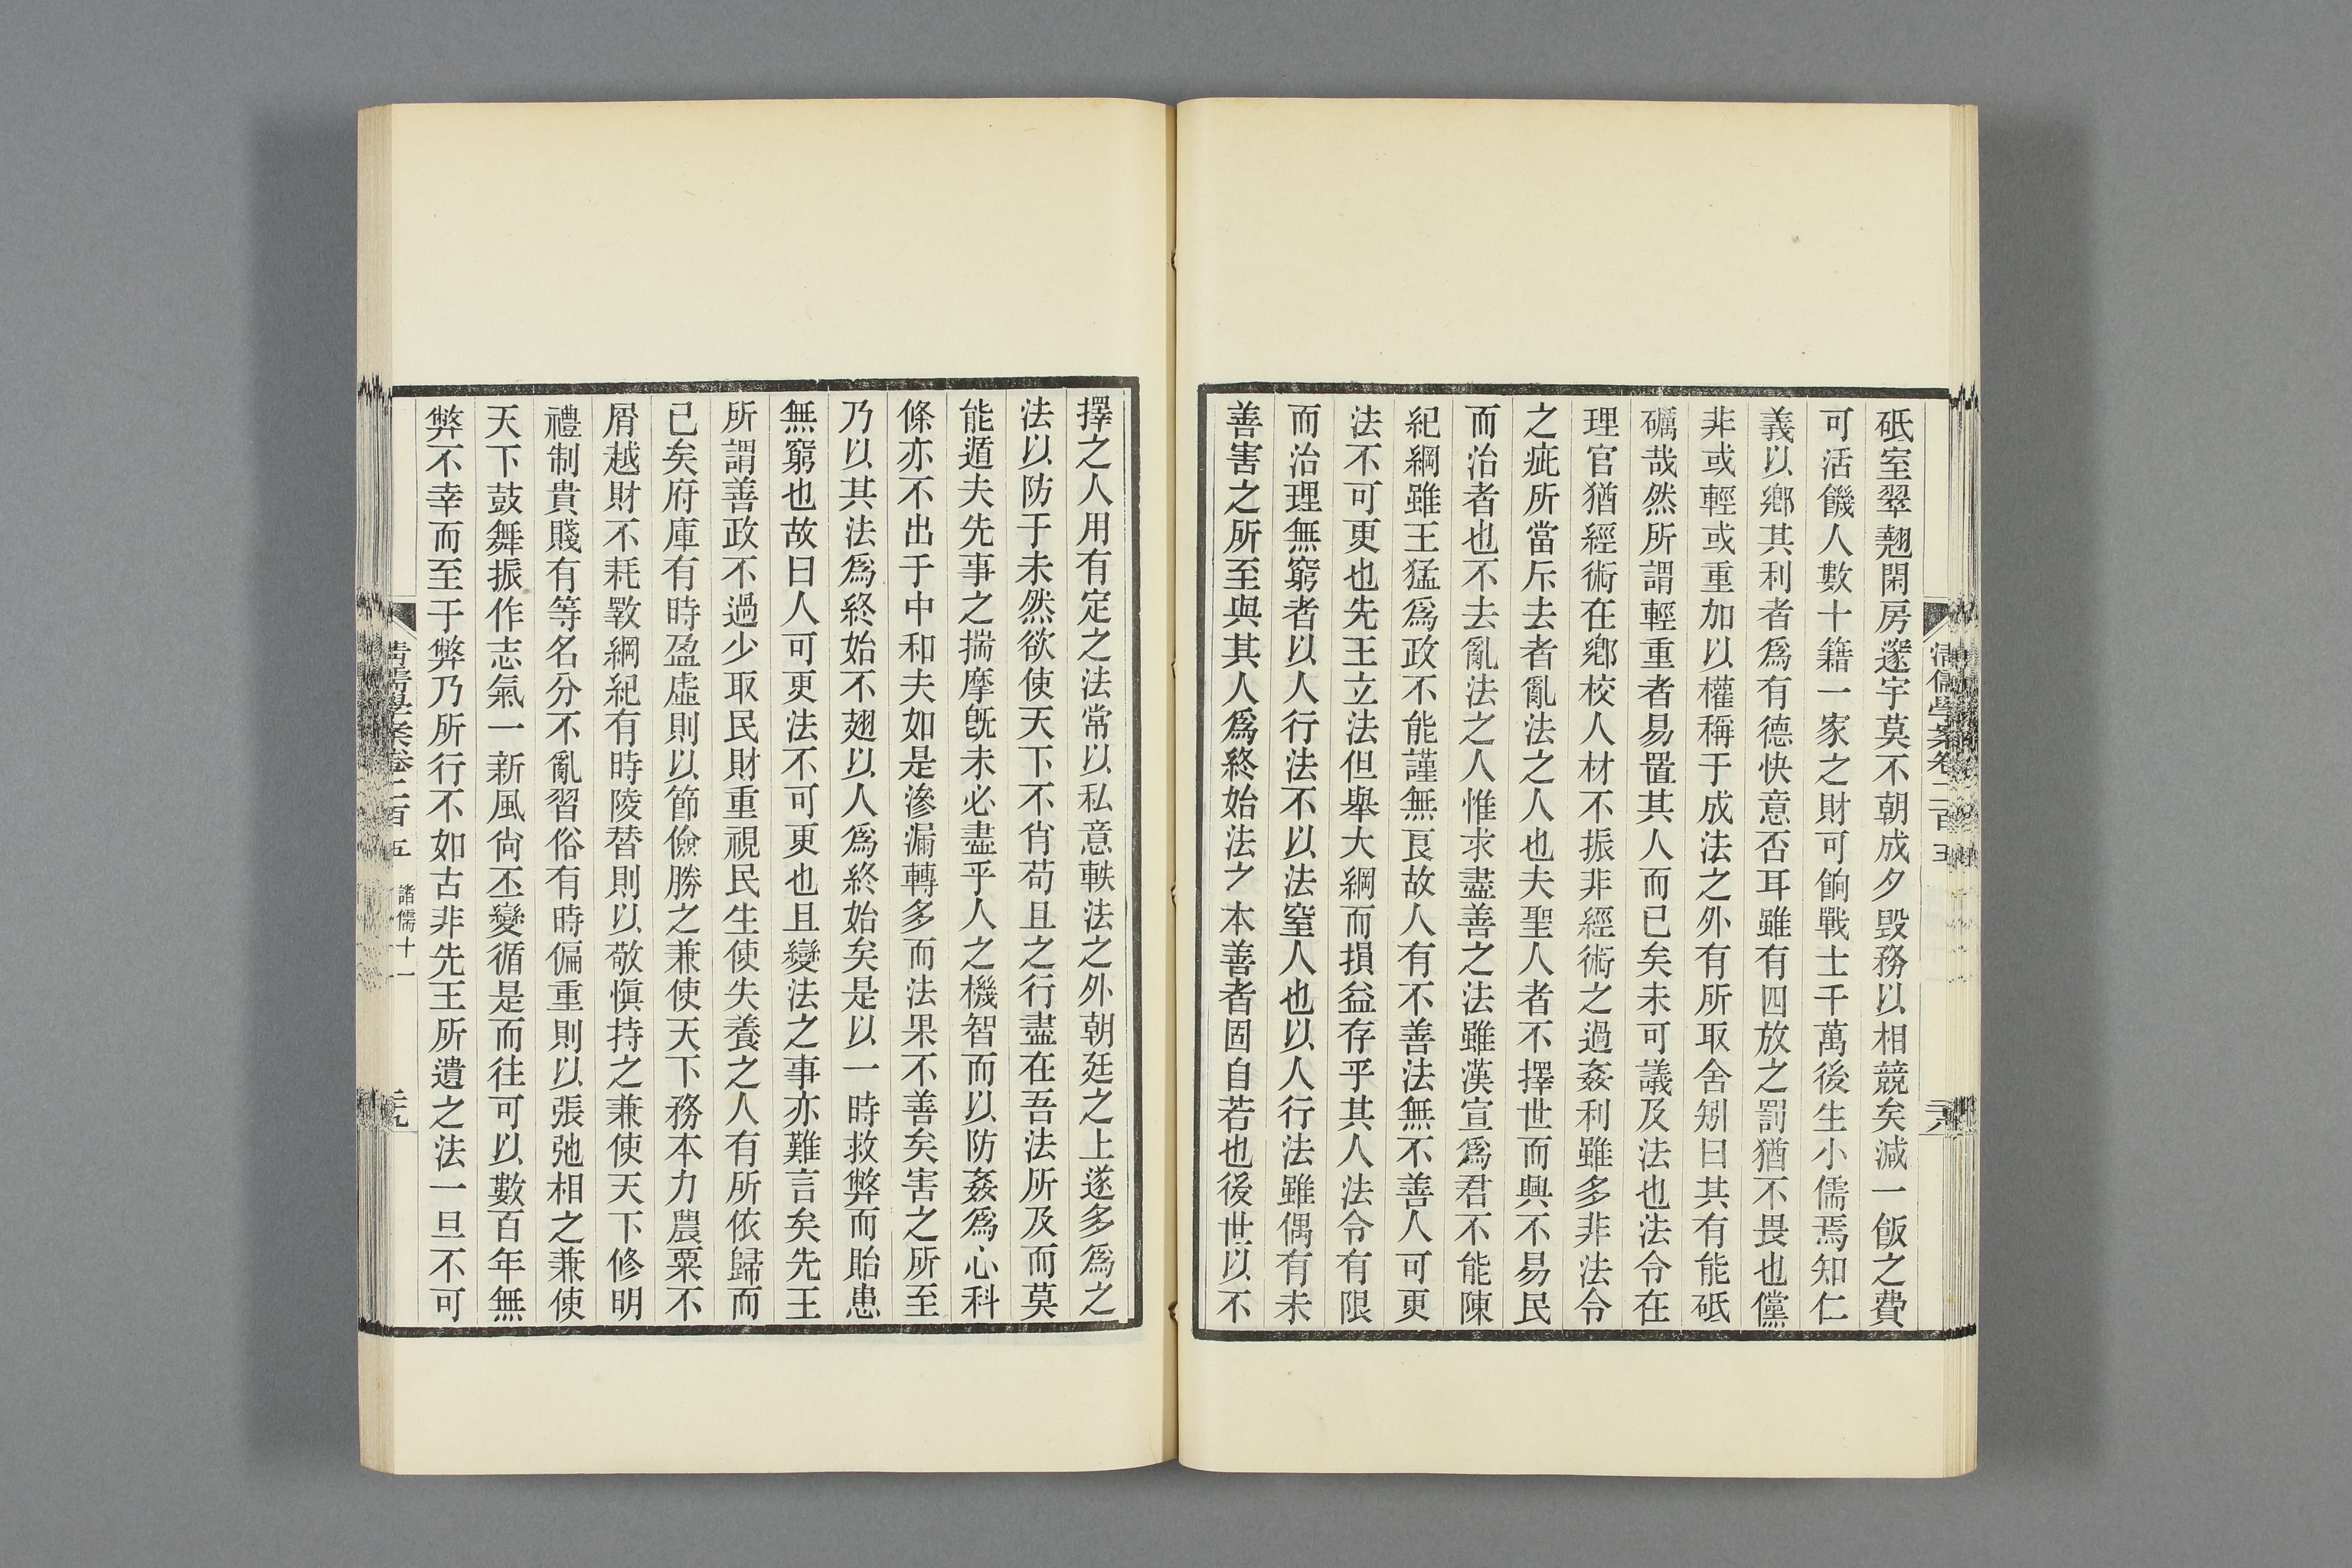 砥室翠翹閑房邃宇莫不朝成夕毀務以相競矣減一飯之費
可活饑人數十籍一家之財可餉戰士千萬後生小儒焉知仁
義以鄉其利者爲有德快意否耳雖有四放之罰猶不畏也儻
非或輕或重加以權稱于成法之外有所取舍矧曰其有能砥
礪哉然所謂輕重者易置其人而已矣未可議及法也法令在
理官猶經術在鄉校人材不振非經術之過姦利雖多非法令
之疵所當斥去者亂法之人也夫聖人者不擇世而興不易民
而治者也不去亂法之人惟求盡善之法雖漢宣爲君不能陳
紀綱雖王猛爲政不能謹無良故人有不善法無不善人可更
法不可更也先王立法但舉大綱而損益存乎其人法令有限
而治理無窮者以人行法不以法窒人也以人行法雖偶有未
善害之所至與其人爲終始法之本善者固自若也後世以不
擇之人用有定之法常以私意軼法之外朝廷之上遂多爲之
法以防于未然欲使天下不肖苟且之行盡在吾法所及而莫
能遁夫先事之揣摩旣未必盡乎人之機智而以防姦爲心科
條亦不出于中和夫如是滲漏轉多而法果不善矣害之所至
乃以其法爲終始不翅以人爲終始矣是以一時救弊而貽患
無窮也故曰人可更法不可更也且變法之事亦難言矣先王
所謂善政不過少取民財重視民生使失養之人有所依歸而
已矣府庫有時盈虛則以節儉勝之兼使天下務本力農粟不
屑越財不耗斁綱紀有時陵替則以敬愼持之兼使天下修明
禮制貴賤有等名分不亂習俗有時偏重則以張弛相之兼使
天下鼓舞振作志氣一新風尙丕變循是而往可以數百年無
弊不幸而至于弊乃所行不如古非先王所遺之法一旦不可
清儒學案卷二百五
諸儒十一